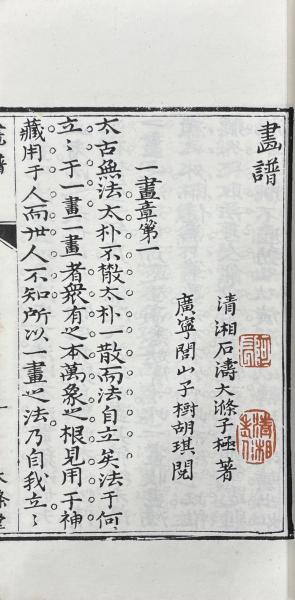 畫譜
清湘石濤大滌子極著
廣寧閭山子樹胡琪閱
一畫章第一
太古無法太朴不散太朴一散而法自立矣法于何
立〻于一畫一畫者衆有之本萬象之根見用于神
藏用于人而世人不知所以一畫之法乃自我立〻
畫譜